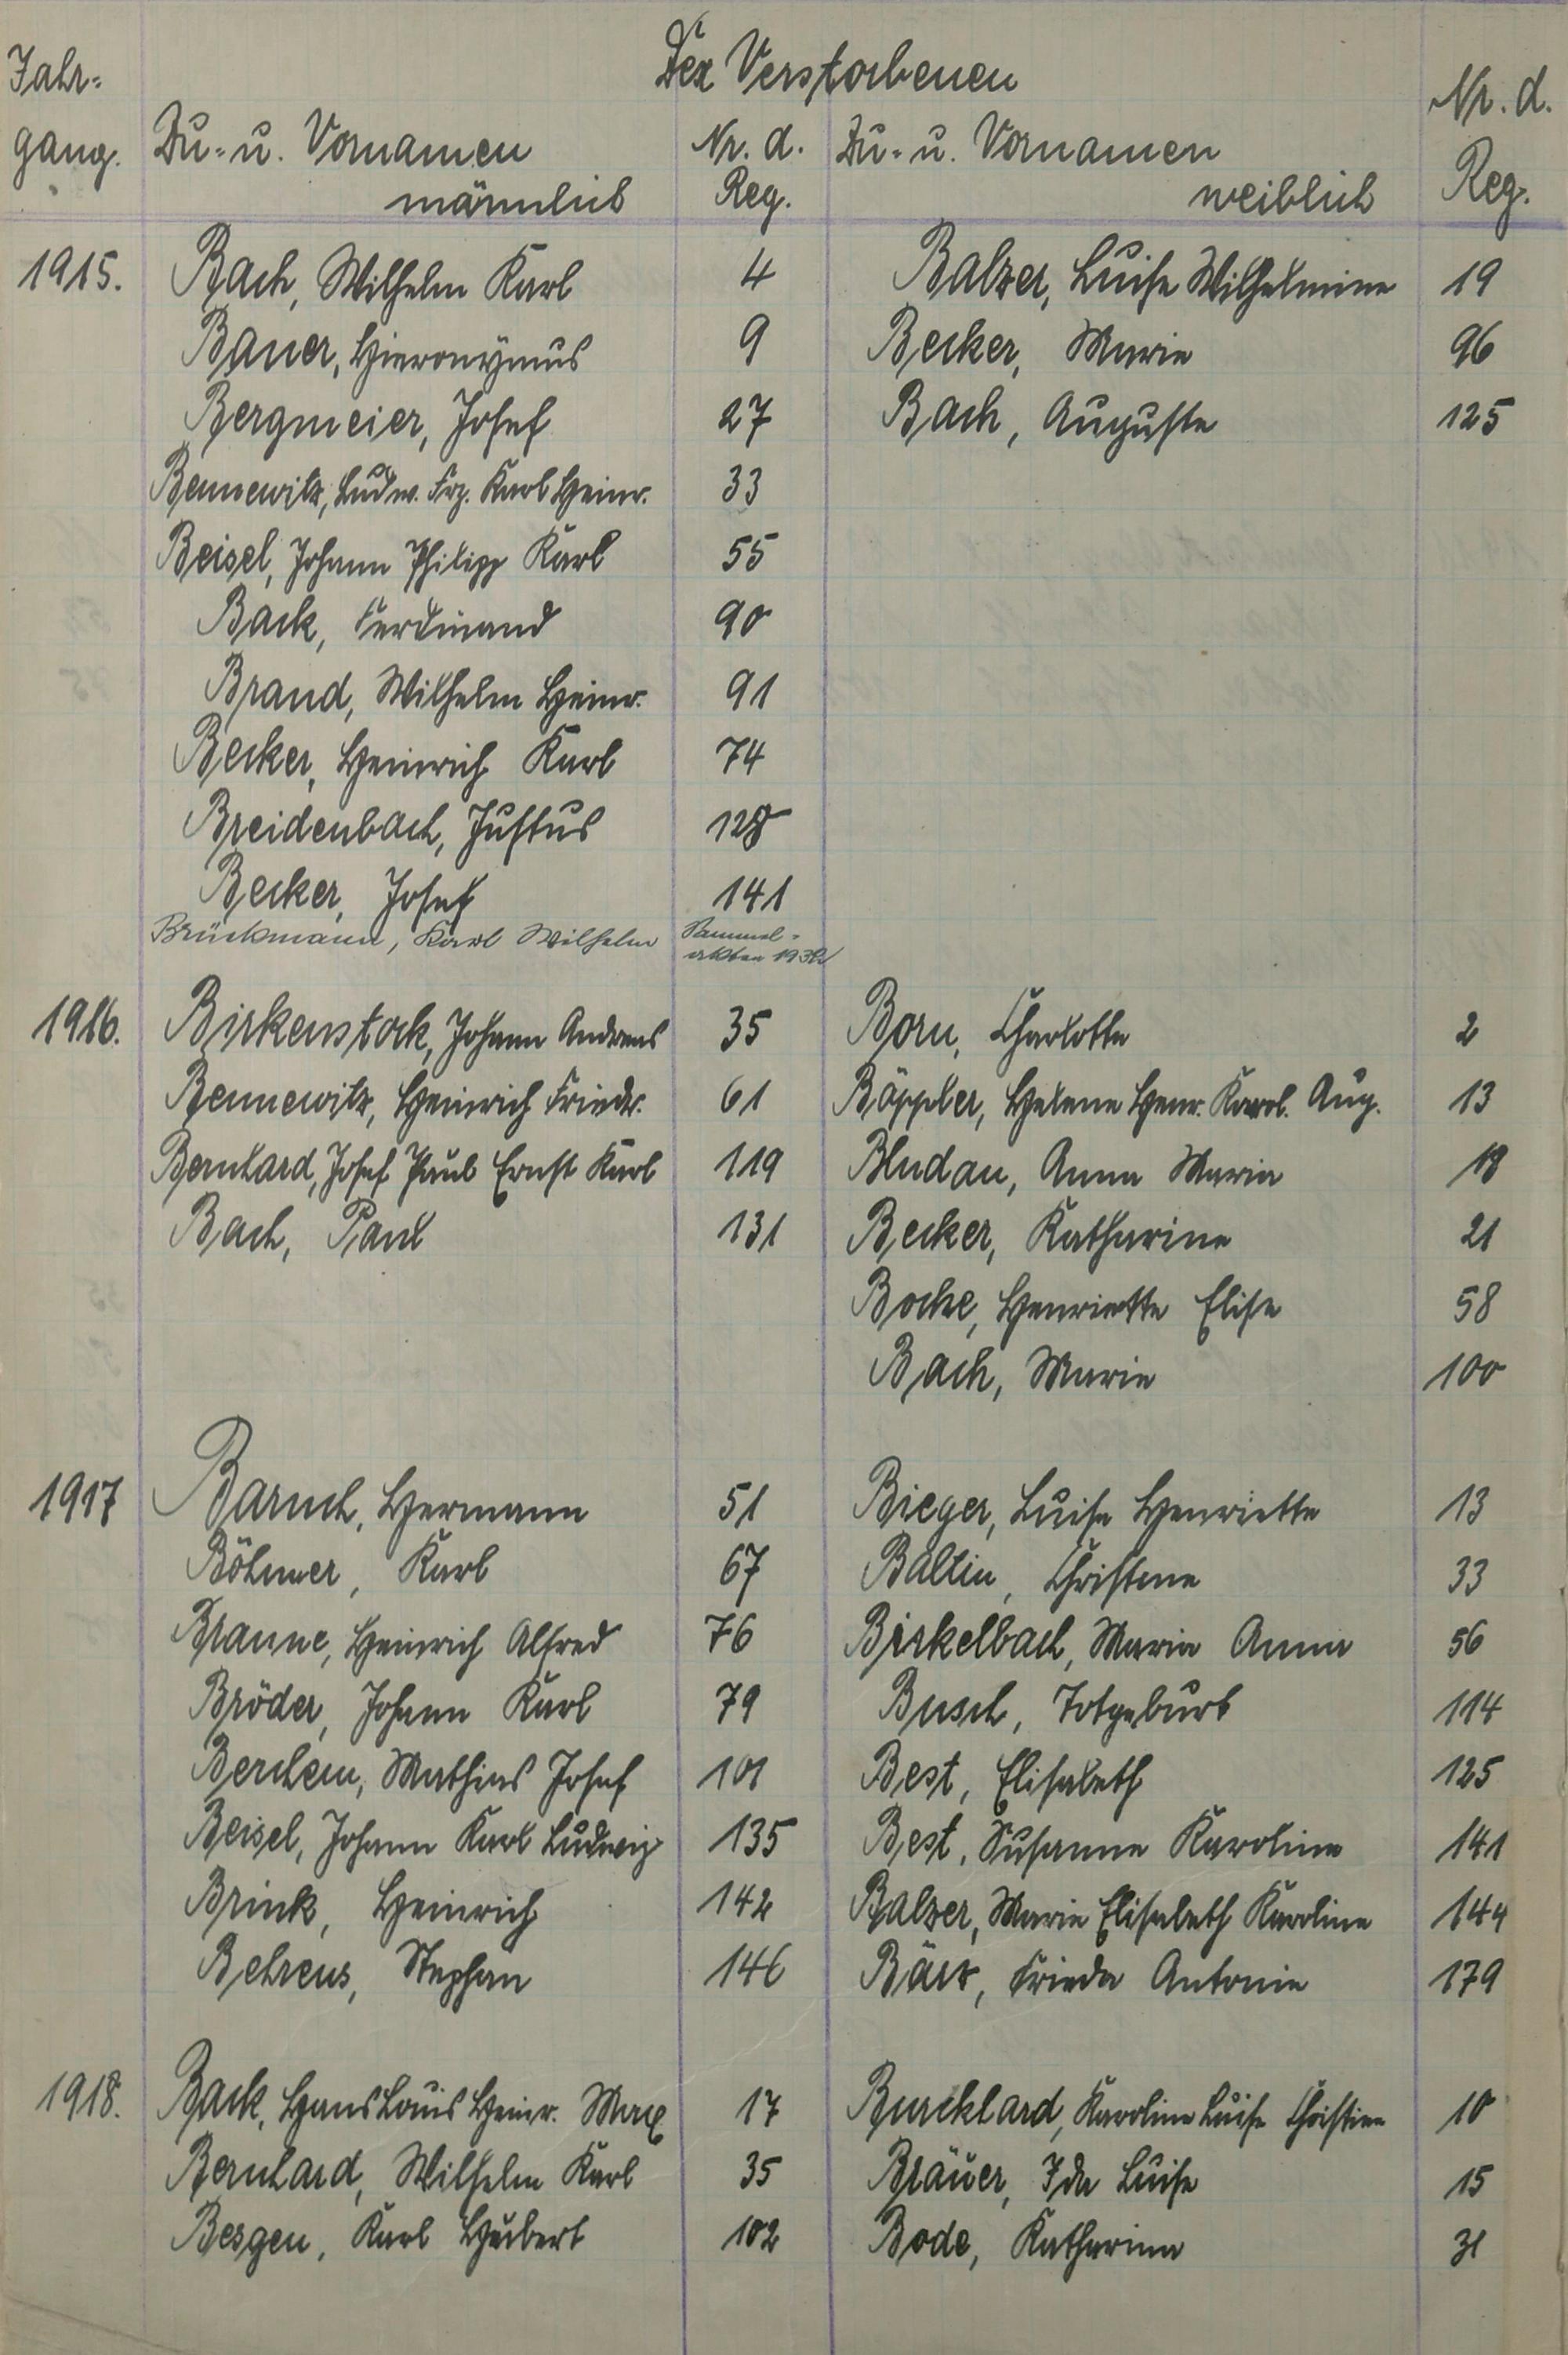 Der Verstorbenen
Jahr-
gang.
Zu- u. Vornamen
männlich
Nr. d.
Reg.
Zu- u. Vornamen
weiblich
Nr. d.
Reg.
1915. Bach, Wilhelm Karl 4 Balzer, Luise Wilhelmine 19
Bauer, Hieronymus 9 Becker, Marie 96
Bergmeier, Josef 27 Bach, Auguste 125
Bennewitz, Ludw. Frz. Karl Heinr. 33
Beisel, Johann Philipp Karl 55
Back, Ferdinand 90
Brand, Wilhelm Heinr. 91
Becker, Heinrich Karl 74
Breidenbach, Justus 128
Becker, Josef 141
Brückmann, Karl Wilhelm Sammel-
akten
1916. Birkenstock, Johann Andreas 35 Born, Charlotte 2
Bennewitz, Heinrich Friedr. 61 Böppler, Helene Henr. Karol. Aug. 13
Bernhard, Josef Paul Ernst Karl 119 Bludau, Anna Maria 18
Bach, Paul 131 Becker, Katharine 21
Bocke, Henriette Elise 58
Bach, Marie 100
1917 Baruch, Hermann 51 Bieger, Luise Henriette 13
Böhmer, Karl 67 Baltin, Christene 33
Braune, Heinrich Alfred 76 Birkelbach, Maria Anna 56
Bröder, Johann Karl 79 Busch, Totgeburt 114
Berchem, Mathias Josef 101 Best, Elisabeth 125
Beisel, Johann Karl Ludwig 135 Best, Susanne Karoline 141
Brink, Heinrich 142 Balzer, Marie Elisabeth Karoline 144
Behrens, Stephan 146 Bärz, Frieda Antonie 179
1918. Back, Hans Louis Heinr. Max 17 Burckhard, Karoline Luise Christine 10
Bernhard, Wilhelm Karl 35 Bräuer, Ida Luise 15
Besgen, Karl Hubert 102 Bode, Katharina 31